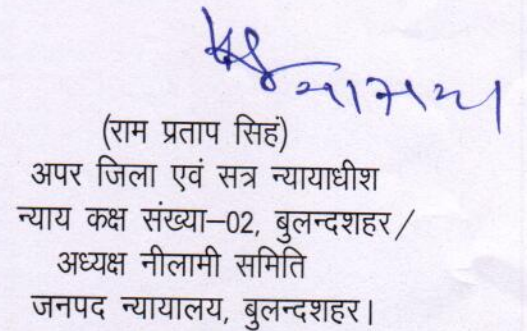 (राम प्रताप सिहं)
अपर जिला एवं सत्र न्यायाधीश
न्याय कक्ष संख्या–02, बुलन्दशहर/
अध्यक्ष नीलामी समिति
जनपद न्यायालय, बुलन्दशहर।